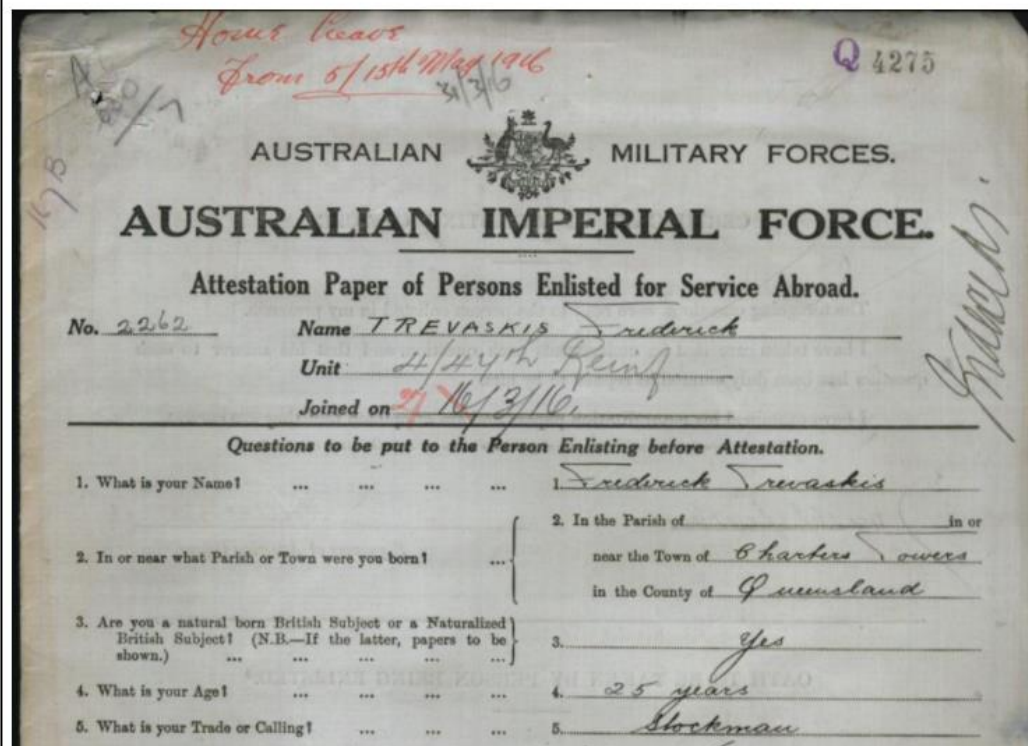 Home Leave
From 5/15th May 1916
31/3/16
Q 4275
AUSTRALIAN MILITARY FORCES.
AUSTRALIAN IMPERIAL FORCE.
Attestation Paper of Persons Enlisted for Service Abroad.
No. 2262 Name TREVASKIS Frederick
Unit 4/47th Reinf
Joined on 16/3/16.
Questions to be put to the Person Enlisting before Attestation.
1. What is your Name? ... ... ... ... 1. Frederick Trevaskis
2. In the Parish of in or
2. In or near what Parish or Town were you born? ... near the Town of Charters Towers
in the County of Queensland
3. Are you a natural born British Subject or a Naturalized
British Subject? (N.B.—If the latter, papers to be 3. Yes
shown.) ... ... ... ... ...
4. What is your Age? ... ... ... ... 4. 25 years
5. What is your Trade or Calling? ... ... ... 5. Stockman